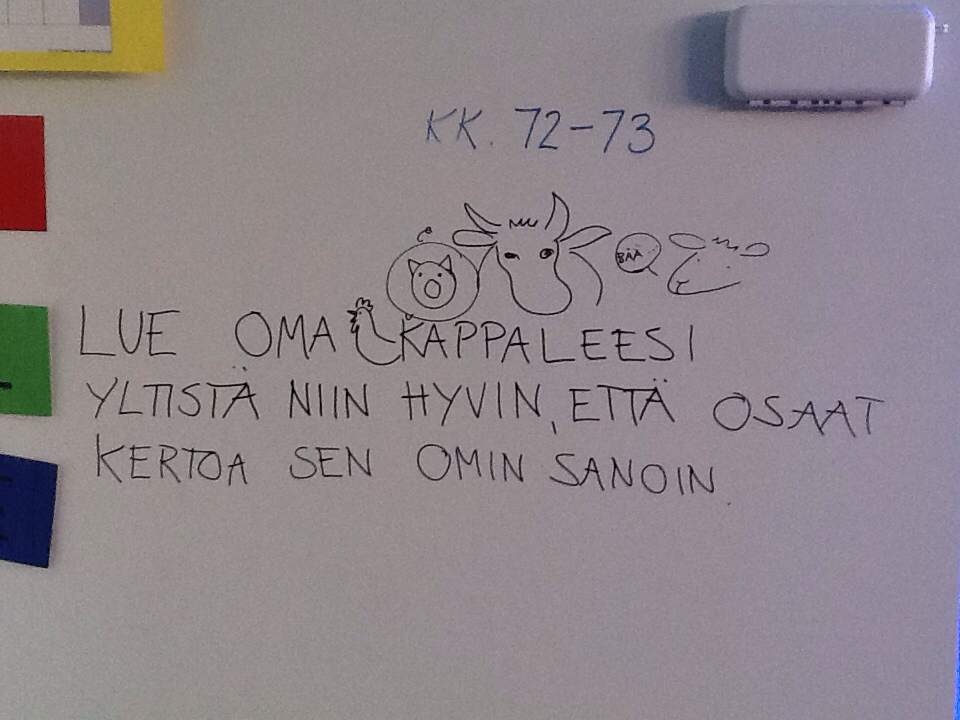 KK. 72-73
BÄÄ
LUE OMA KAPPALEESI
YLTISTÄ NIIN HYVIN, ETTÄ OSAAT
KERTOA SEN OMIN SANOIN.